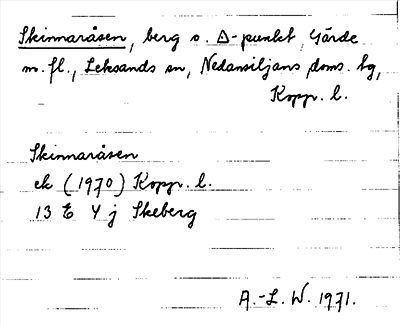 Skinnaråsen, berg o. △-punkt, Gärde
m.fl., Leksands sn, Nedansiljans doms. hg,
Kopp. l.
Skinnaråsen
ek (1970) Kopp. l.
13 E 4 j Skeberg
A.-L. W. 1971.